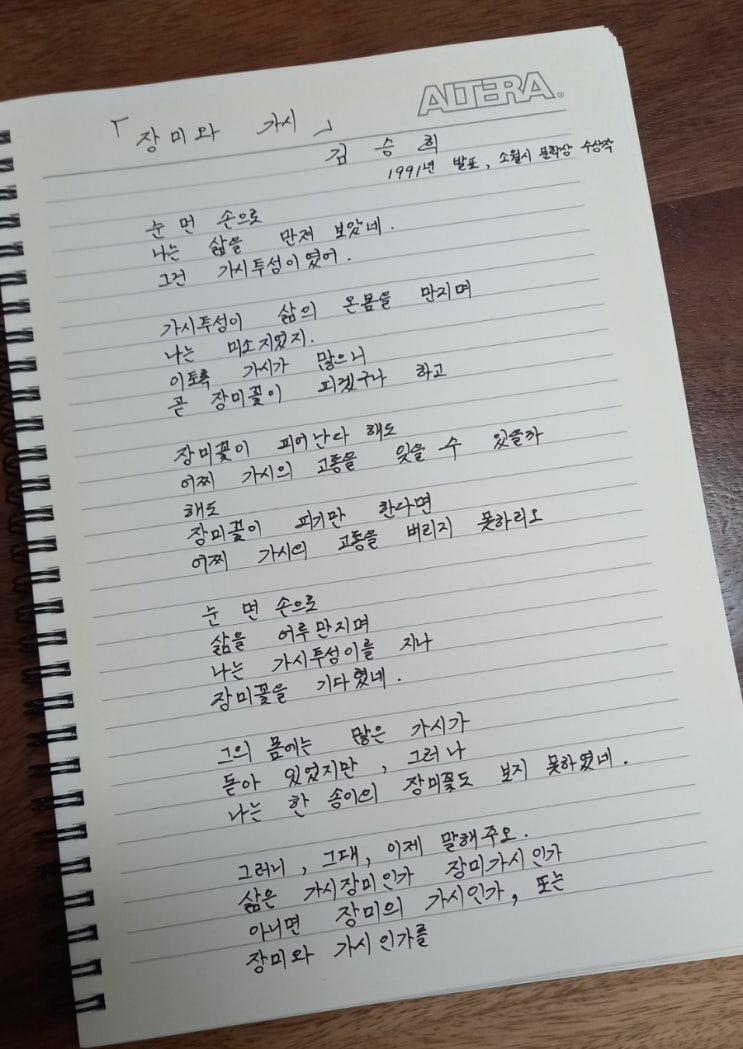 ALTERA®
「장미와 가시」
김승희
1991년 발표, 소월시 문학상 수상작
눈 먼 손으로
나는 삶을 만져 보았네.
그건 가시투성이였어.
가시투성이 삶의 온몸을 만지며
나는 미소지었지.
이토록 가시가 많으니
곧 장미꽃이 피겠구나 하고
장미꽃이 피어난다 해도
어찌 가시의 고통을 잊을 수 있을까
해도
장미꽃이 피기만 한다면
어찌 가시의 고통을 버리지 못하리오
눈 먼 손으로
삶을 어루만지며
나는 가시투성이를 지나
장미꽃을 기다렸네.
그의 몸에는 많은 가시가
돋아 있었지만, 그러나
나는 한 송이의 장미꽃도 보지 못하였네.
그러니, 그대, 이제 말해주오.
삶은 가시장미인가 장미가시인가
아니면 장미의 가시인가, 또는
장미와 가시인가를